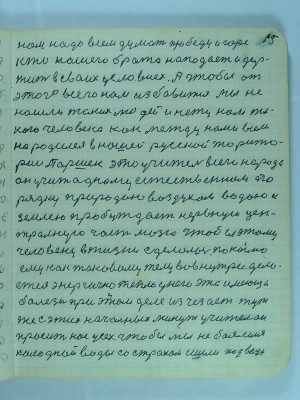 нам надо всем думат победу и горе 19
кто нашего брата нападает и дер-
жит в сваих условиех. А чтобы от
этого всего нам избавитя мы не
нашли таких людей и нету нам та-
кого человека как между нами был
народился в нашей русской терито-
рии Паршек это учител всего народа
он учит адному естественном по
рядку природаю воздухом водою и
землею пробуждает нервную цен-
тралную часть мозга чтобы этому
человеку в жизни сделолы покойно
ему как таковому телу вовнутре дела-
ется энергично тепло у него эта имеющь
болезнь при этом деле изчезает тут
же с этих началных минут учител он
просит нас усех чтобы мы не боялися
холодной воды со страхом ишли